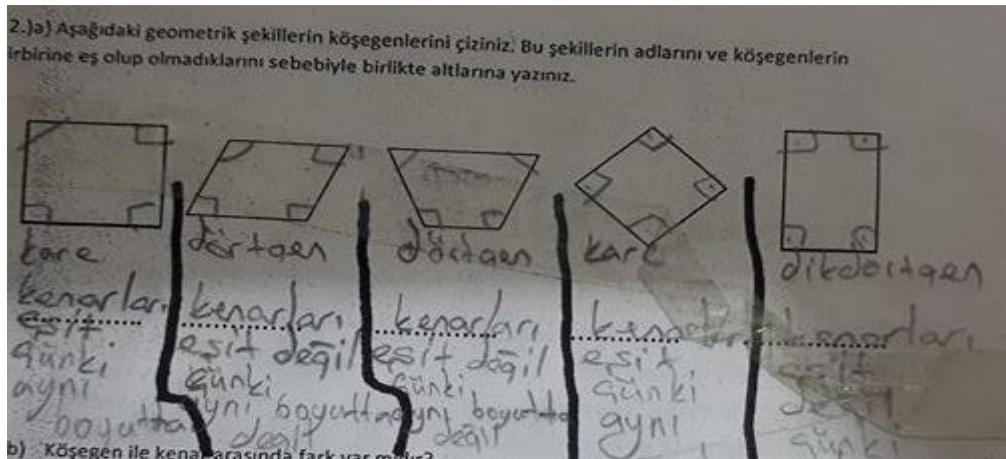 2.)a) Aşağıdaki geometrik şekillerin köşegenlerini çiziniz. Bu şekillerin adlarını ve köşegenlerin
irbirine eş olup olmadıklarını sebebiyle birlikte altlarına yazınız.
kare
kenarları
eşit
çünki
aynı
boyutta
dörtgen
kenarları
eşit değil
çünki
aynı boyutta
değil
dörtgen
kenarları
eşit değil
çünki
aynı boyutta
değil
kare
eşit
çünki
aynı
dikdörtgen
kenarları
eşit
değil
çünki
b) Köşegen ile kenar arasında fark var mıdır?